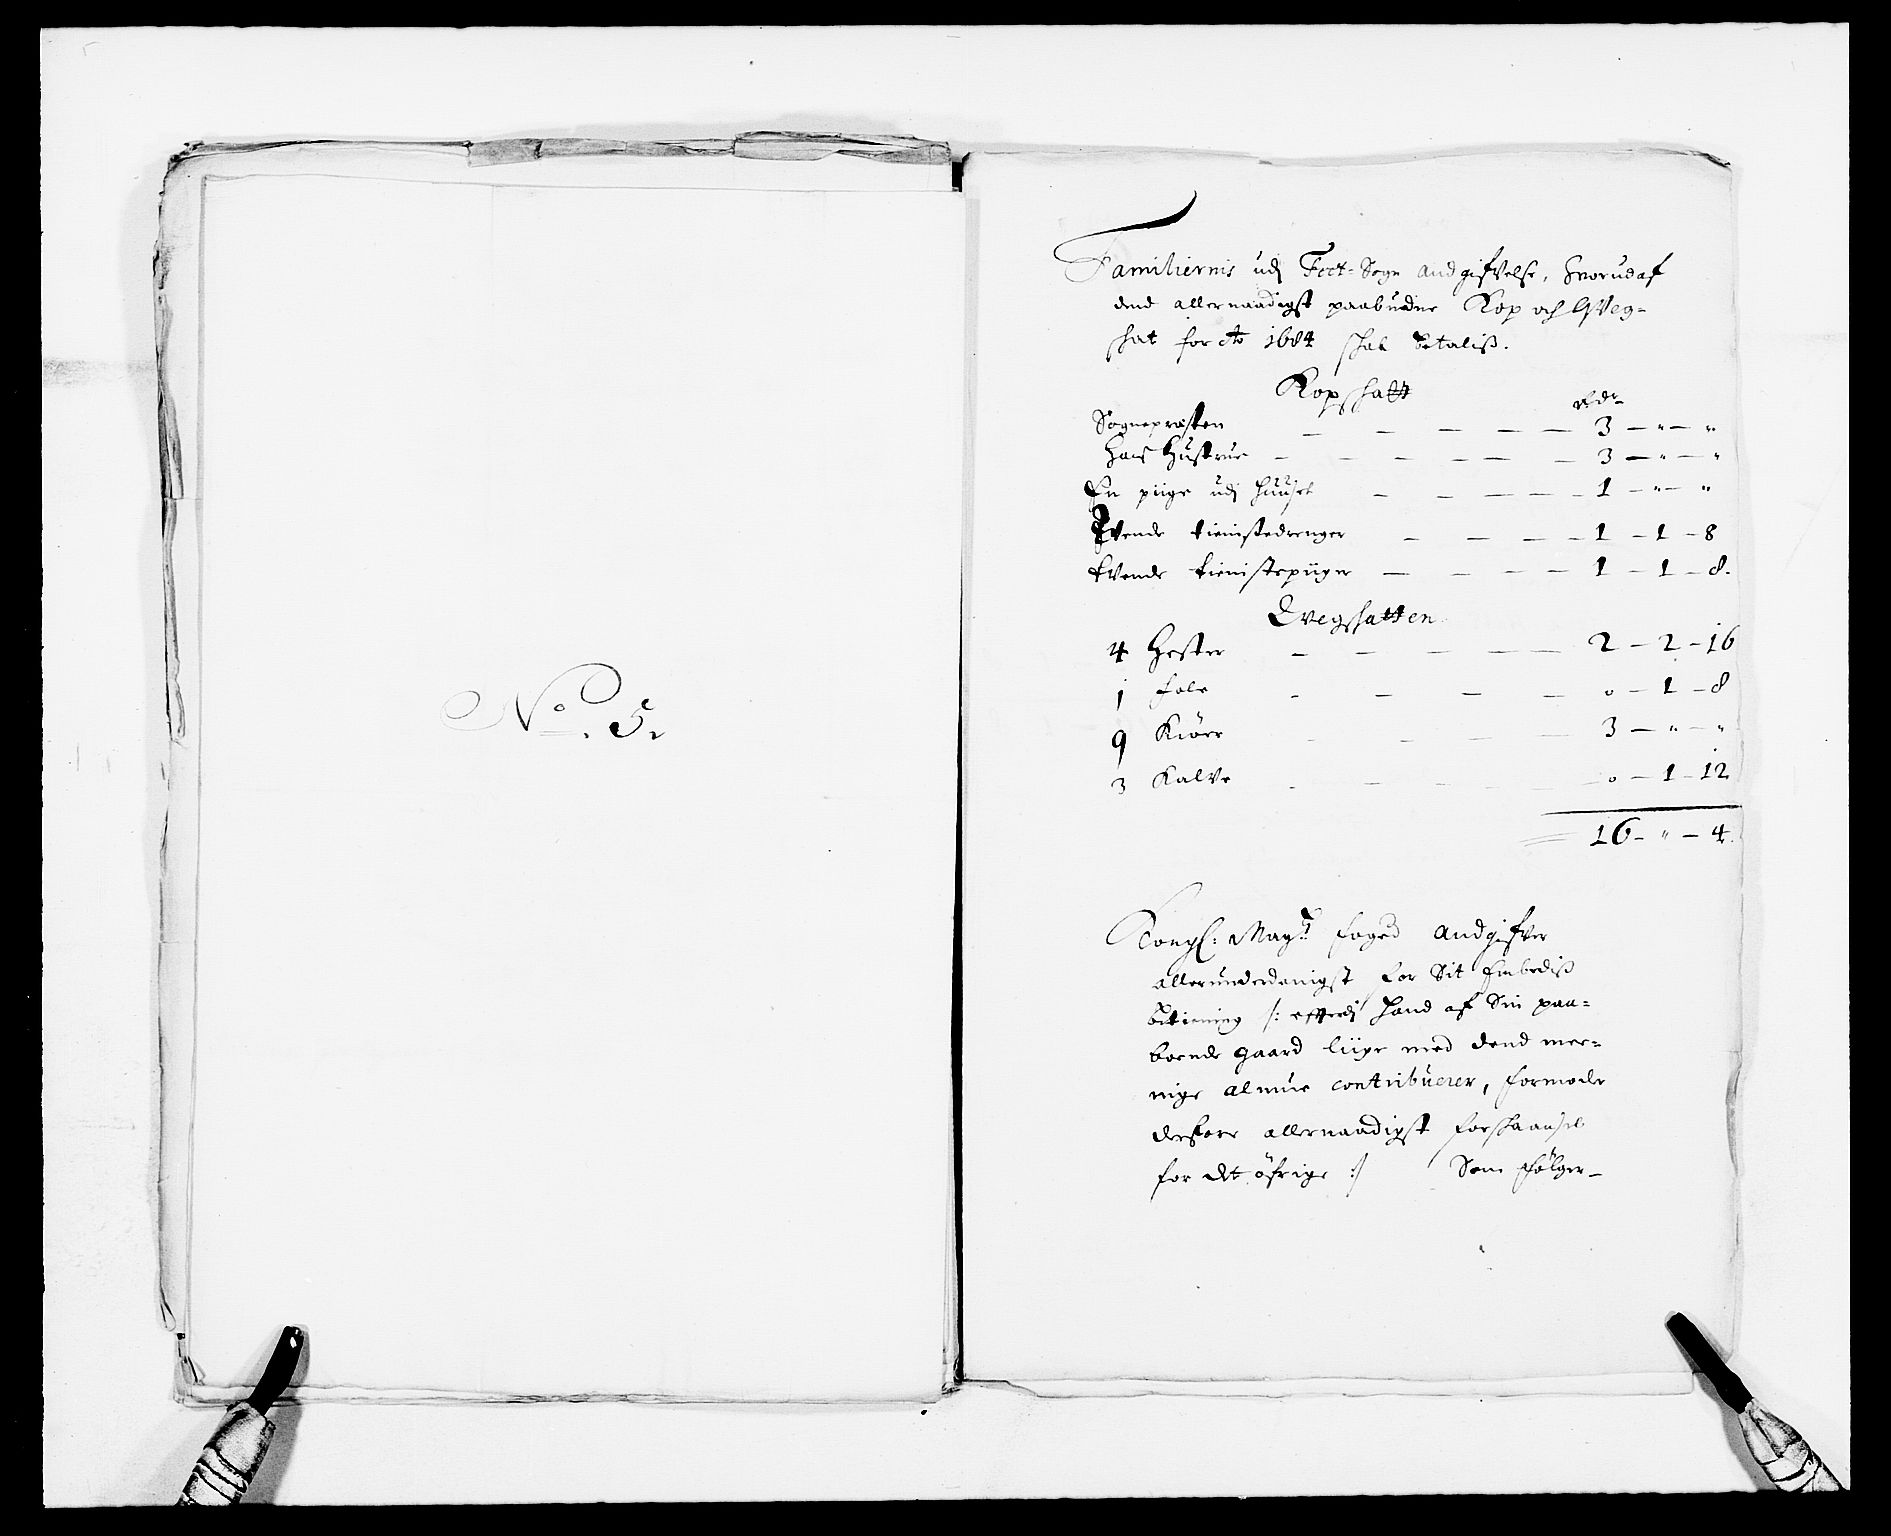 No. 5.
Familiernis udj Feet-Sogn andgifvelse, hvorudaf
dend allernaadigst paabudne Kop och Qveg-
skat for Ao 1684 skal betaliß.
Kopskatt
Rdr
Sognepræsten — — — — — 3 — " — "
Hans Hustrue — — — — — — 3 — " — "
En piige udj huuset — — — — — 1 — " — "
Tvende tienistedrenger — — — — 1 — 1 — 8
tvende tienistepiiger — — — — 1 — 1 — 8.
Qvegskatten
4 Hester — — — — — 2 — 2 — 16
1 fole — — — — 0 — 1 — 8
9 Kiöer — — — — 3 — " — "
3 Kalve — — — — — 0 — 1 — 12
16 — " — 4.
Kongl: Mayts foged andgifver
allerunderdanigst for Sit Embediß
betiening /: efterdj hand af Sin paa-
boende gaard liige med dend mee-
nige almue contribuerer, formoder
derfore allernaadigst forskaansel
for det öfrige :/ Som fölger —